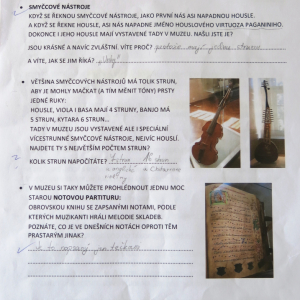 SMYČCOVÉ NÁSTROJE
KDYŽ SE ŘEKNOU SMYČCOVÉ NÁSTROJE, JAKO PRVNÍ NÁS ASI NAPADNOU HOUSLE.
A KDYŽ SE ŘEKNE HOUSLE, ASI NÁS NAPADNE JMÉNO HOUSLOVÉHO VIRTUOZA PAGANINIHO.
DOKONCE I JEHO HOUSLE MAJÍ VYSTAVENÉ TADY V MUZEU. NAŠLI JSTE JE?
JSOU KRÁSNÉ A NAVÍC ZVLÁŠTNÍ. VÍTE PROČ? protože mají jednu strunu
A VÍTE, JAK SE JIM ŘÍKÁ?
VĚTŠINA SMYČCOVÝCH NÁSTROJŮ MÁ TOLIK STRUN,
ABY JE MOHLY MAČKAT (A TÍM MĚNIT TÓNY) PRSTY
JEDNÉ RUKY:
HOUSLE, VIOLA I BASA MAJÍ 4 STRUNY, BANJO MÁ
5 STRUN, KYTARA MÁ 6 STRUN...
TADY V MUZEU JSOU VYSTAVENÉ ALE I SPECIÁLNÍ
VÍCESTRUNNÉ SMYČCOVÉ NÁSTROJE, NEJVÍC HOUSLÍ.
NAJDETE TY S NEJVĚTŠÍM POČTEM STRUN?
KOLIK STRUN NAPOČÍTÁTE?
V MUZEU SI TAKY MŮŽETE PROHLÉDNOUT JEDNU MOC
STAROU NOTOVOU PARTITURU:
OBROVSKOU KNIHU SE ZAPSANÝMI NOTAMI, PODLE
KTERÝCH MUZIKANTI HRÁLI MELODIE SKLADEB.
POZNÁTE, CO JE VE DNEŠNÍCH NOTÁCH OPROTI TĚM
PRASTARÝM JINAK?